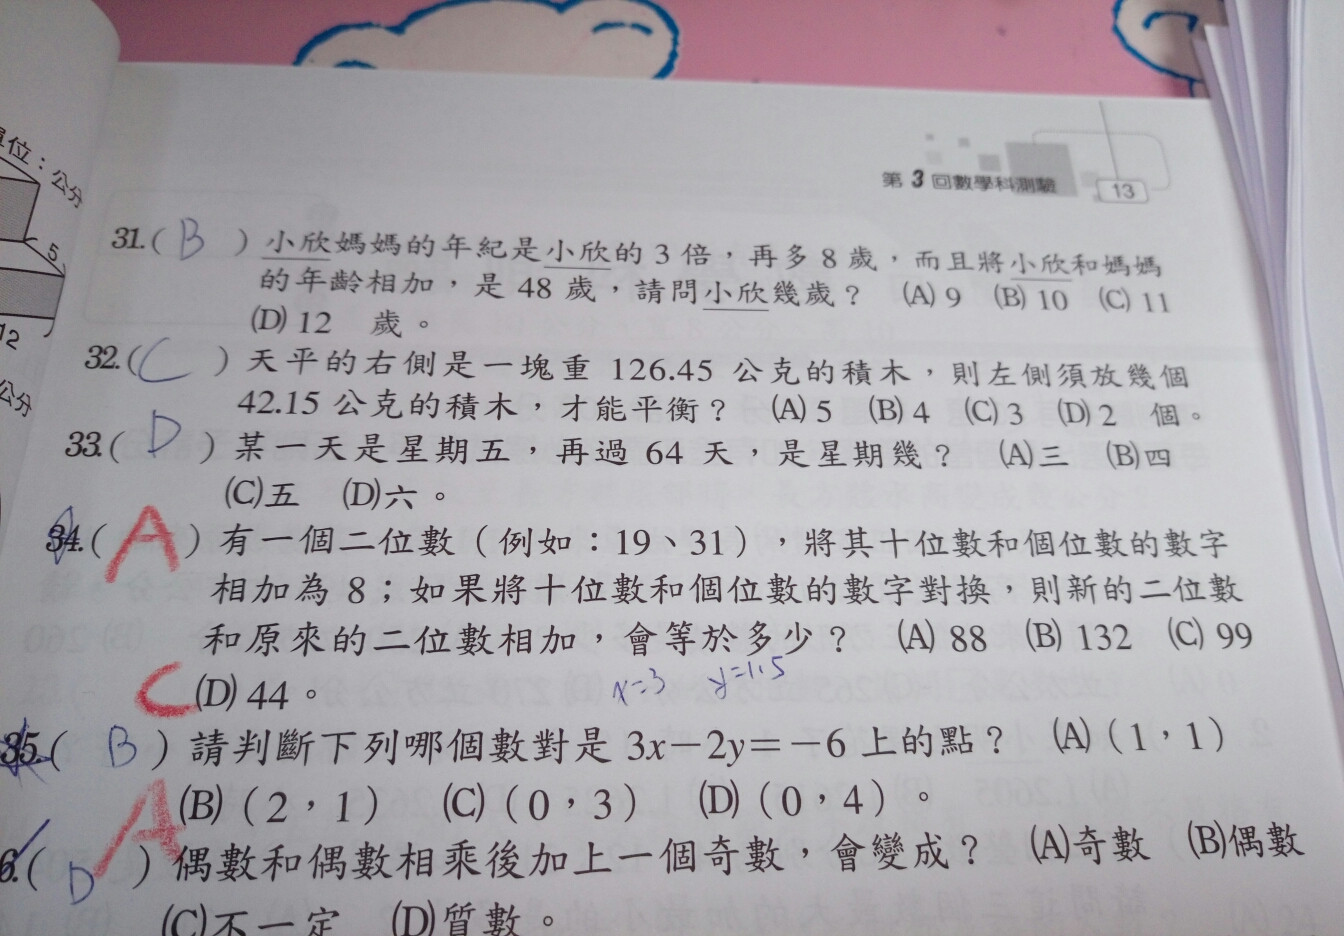 單位：公分
5
12
公分
第3回數學科測驗 13
31.( B )小欣媽媽的年紀是小欣的 3 倍，再多 8 歲，而且將小欣和媽媽
的年齡相加，是 48 歲，請問小欣幾歲？ (A) 9 (B) 10 (C) 11
(D) 12 歲。
32.( C )天平的右側是一塊重 126.45 公克的積木，則左側須放幾個
42.15 公克的積木，才能平衡？ (A) 5 (B) 4 (C) 3 (D) 2 個。
33.( D )某一天是星期五，再過 64 天，是星期幾？ (A)三 (B)四
(C)五 (D)六。
34.( A )有一個二位數（例如：19、31），將其十位數和個位數的數字
相加為 8；如果將十位數和個位數的數字對換，則新的二位數
和原來的二位數相加，會等於多少？ (A) 88 (B) 132 (C) 99
(D) 44。
x=3 y=1.5
C
35.( B )請判斷下列哪個數對是 3x－2y＝－6 上的點？ (A)（1，1）
(B)（2，1） (C)（0，3） (D)（0，4）。
A
6.( D )偶數和偶數相乘後加上一個奇數，會變成？ (A)奇數 (B)偶數
(C)不一定 (D)質數。